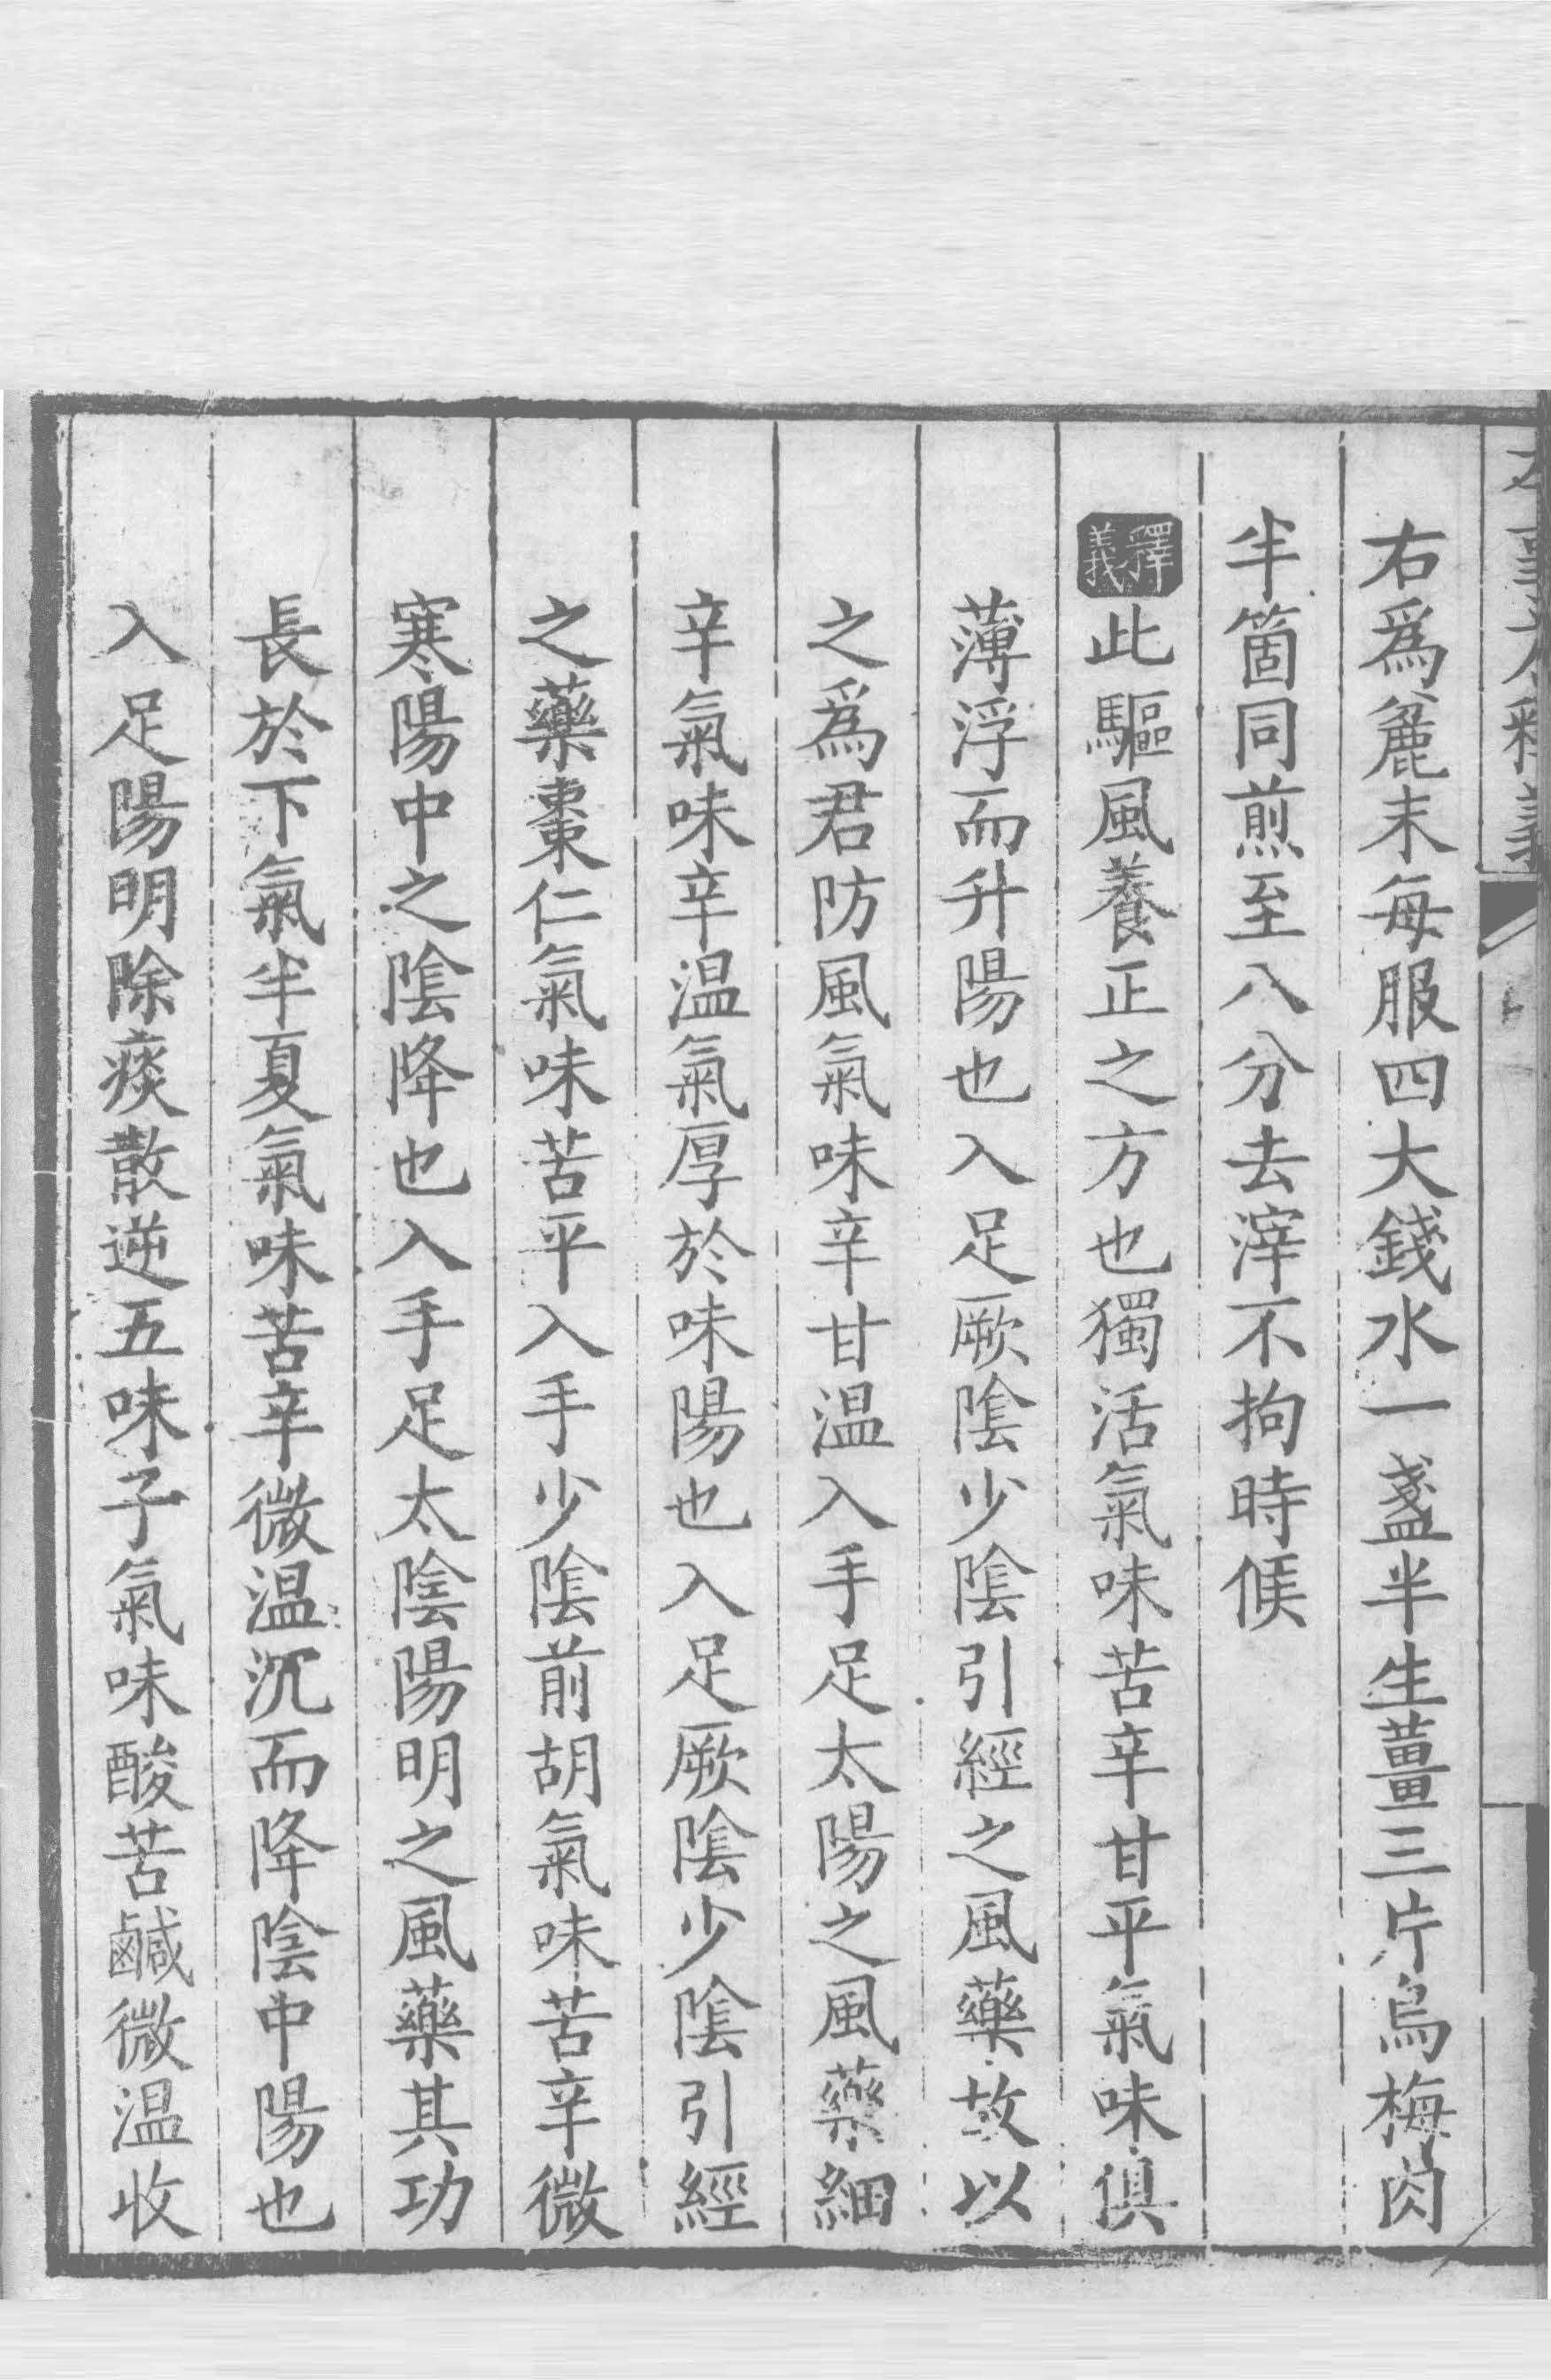 右爲麄末每服四大錢水一盞半生薑三片烏梅肉
半箇同煎至八分去滓不拘時候
釋義此驅風養正之方也獨活氣味苦辛甘平氣味俱
薄浮而升陽也入足厥陰少陰引經之風藥故以
之爲君防風氣味辛甘温入手足太陽之風藥細
辛氣味辛温氣厚於味陽也入足厥陰少陰引經
之藥棗仁氣味苦平入手少陰前胡氣味苦辛微
寒陽中之陰降也入手足太陰陽明之風藥其功
長於下氣半夏氣味苦辛微温沉而降陰中陽也
入足陽明除痰散逆五味子氣味酸苦鹹微温收